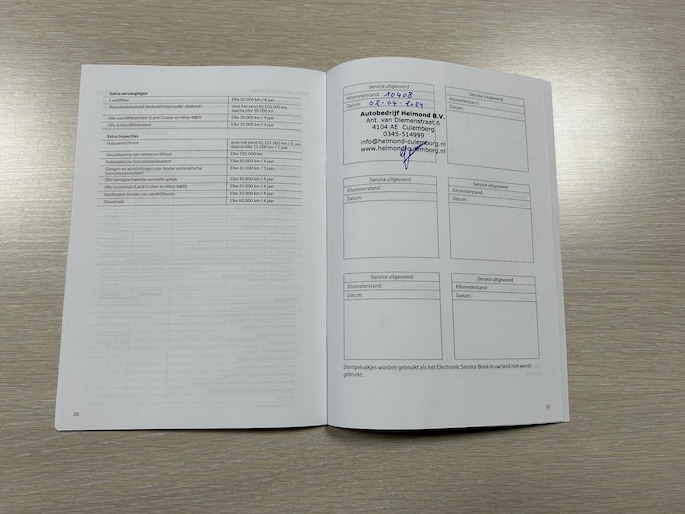 Extra vervangingen
Luchtfilter Elke 60.000 km / 4 jaar
Motorkoelvloeistof (inclusief intercooler vloeistof) Voor het eerst bij 150.000 km, daarna elke 90.000 km
Olie voordifferentieel (Land Cruiser en Hilux 4WD) Elke 30.000 km / 4 jaar
Olie achterdifferentieel Elke 30.000 km / 4 jaar
Extra inspecties
Elke 195.000 km
Automatische transmissievloeistof Elke 60.000 km / 4 jaar
Slangen en aansluitingen voor koeler automatische transmissievloeistof Elke 45.000 km / 3 jaar
Olie handgeschakelde versnellingsbak Elke 45.000 km / 4 jaar
Olie tussenbak (Land Cruiser en Hilux 4WD) Elke 45.000 km / 4 jaar
Elke 30.000 km / 2 jaar
Elke 60.000 km / 4 jaar
26
Service uitgevoerd
Kilometerstand: 10408
Datum: 02-04-2024
Autobedrijf Helmond B.V.
Ant. van Diemenstraat 6
4104 AE Culemborg
0345-514999
info@helmond-culemborg.nl
www.helmond-culemborg.nl
Service uitgevoerd
Kilometerstand:
Datum:
Service uitgevoerd
Kilometerstand:
Datum:
Service uitgevoerd
Kilometerstand:
Datum:
Service uitgevoerd
Kilometerstand:
Datum:
Service uitgevoerd
Kilometerstand:
Datum:
Stempelvakjes worden gebruikt als het Electronic Service Book in uw land niet wordt
gebruikt.
27